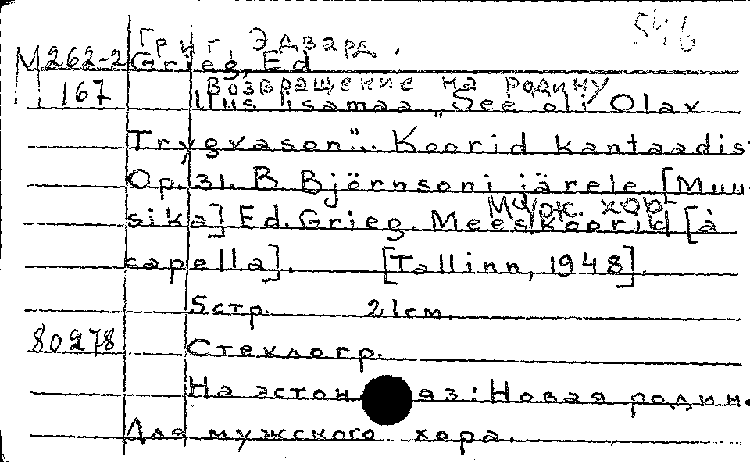 546
Григ, Эдвард.
M262-2 Grieg, Ed
Возвращение на родину
167 Uus isamaa „See oli Olav
Trygvason“. Koorid kantaadist
Op. 31. B. Björnsoni järele [Muu-
муж. хор
sika] Ed. Grieg. Meeskoorid [à
capella]. [Tallinn, 1948].
5 стр. 21 см.
80278 Стеклогр.
На эстон. яз: Новая родина
Для мужского хора.